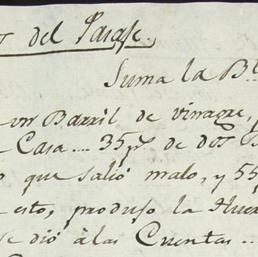 del Parage.
Suma la B
un Barril de vinagre,
Casa.... 35 p.s de dos B
que salió malo, y 55
esto, produjo la Hue
se dió á las Cuentas..